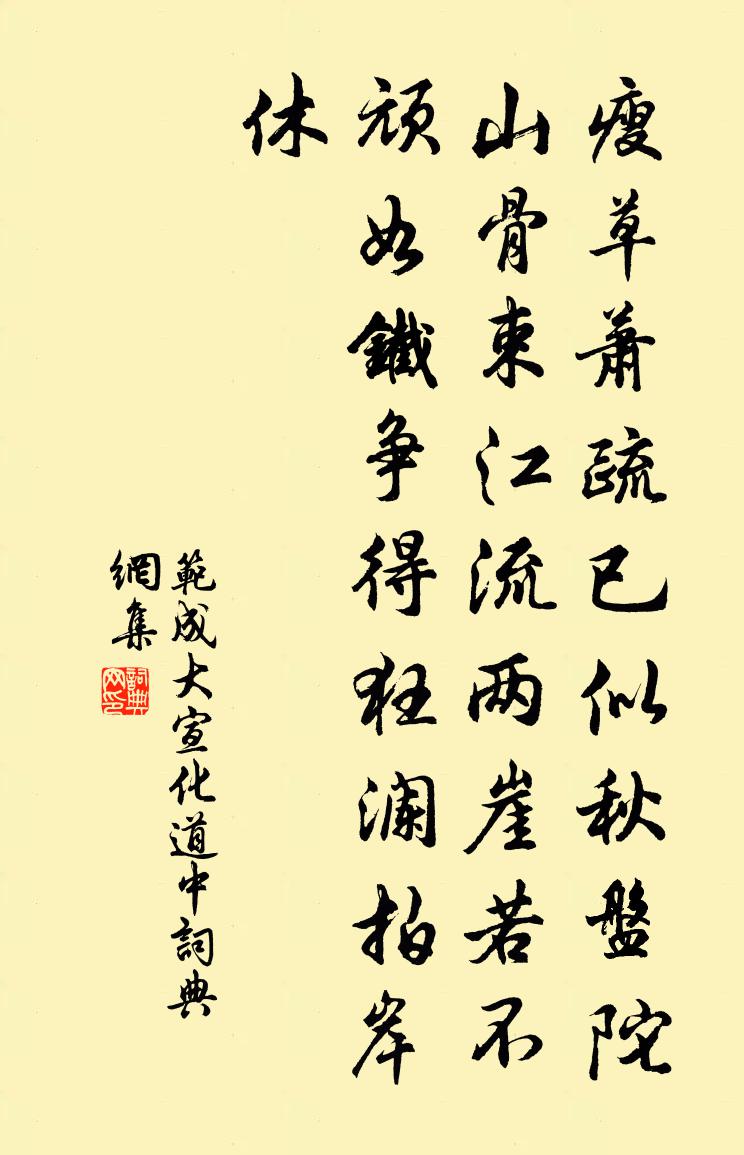 瘦草萧疏已似秋盤陀
山骨束江流两崖若不
顽如鐵争得狂澜拍岸
休
範成大宣化道中詞典
網集
詞典网印